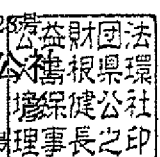 28号
公社
公益財団法
人島根県環
境保健公社
理事長之印